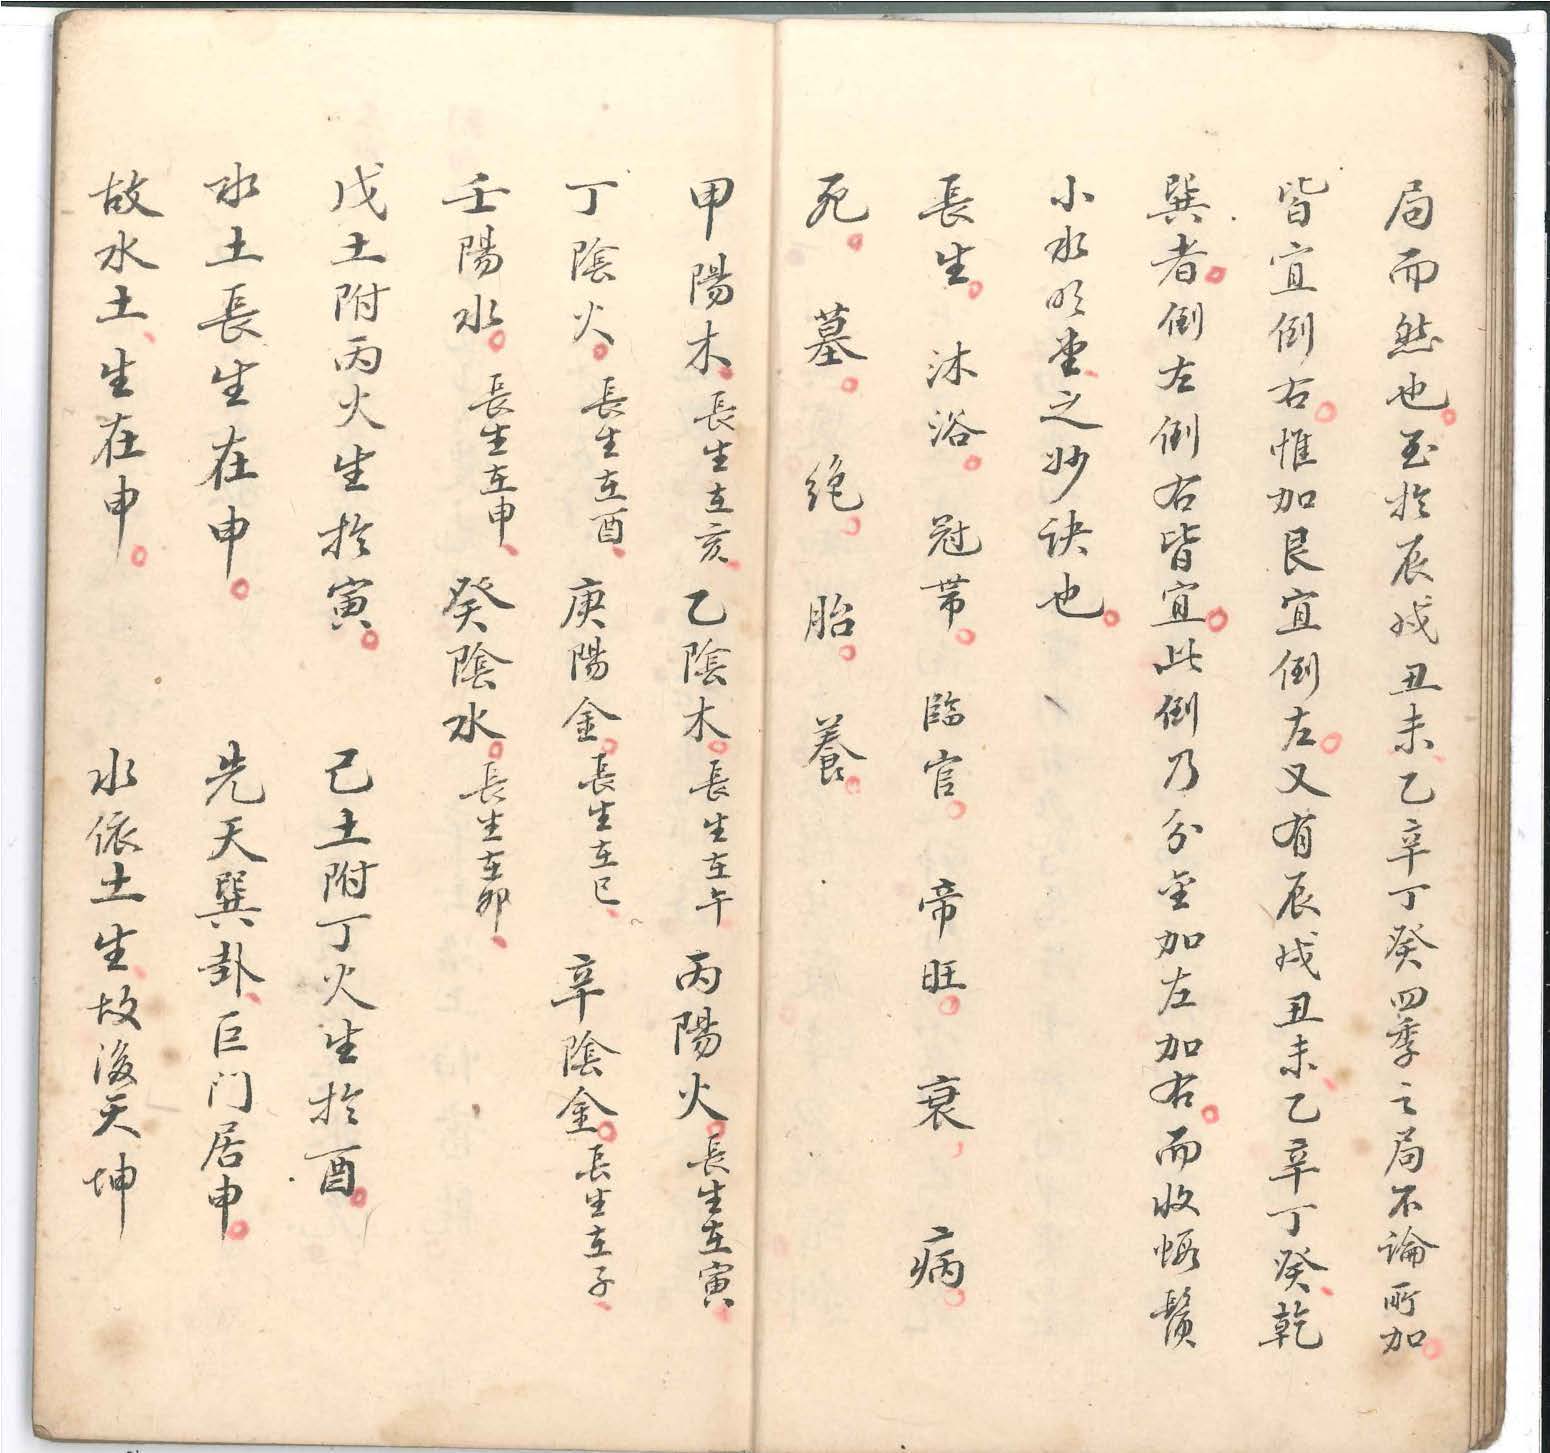 局而然也。至於辰戌丑未、乙辛丁癸四季之局不論所加。
皆宜倒右。惟加艮宜倒左。又有辰戌丑未、乙辛丁癸、乾
巽者。倒左倒右皆宜。此倒乃分金加左加右。而收蝦鬚
小水明堂、之妙訣也。
長生。沐浴。冠帶。臨官。帝旺。衰、病。
死。墓。絶。胎。養。
甲陽木。長生在亥、乙陰木。長生在午、丙陽火。長生在寅、
丁陰火。長生在酉、庚陽金。長生在巳、辛陰金。長生在子、
壬陽水。長生在申、癸陰水。長生在卯、
戊土附丙火生於寅。己土附丁火生於酉。
水土長生在申。先天巽卦、巨门居申。
故水土、生在申。水依土生、故後天坤